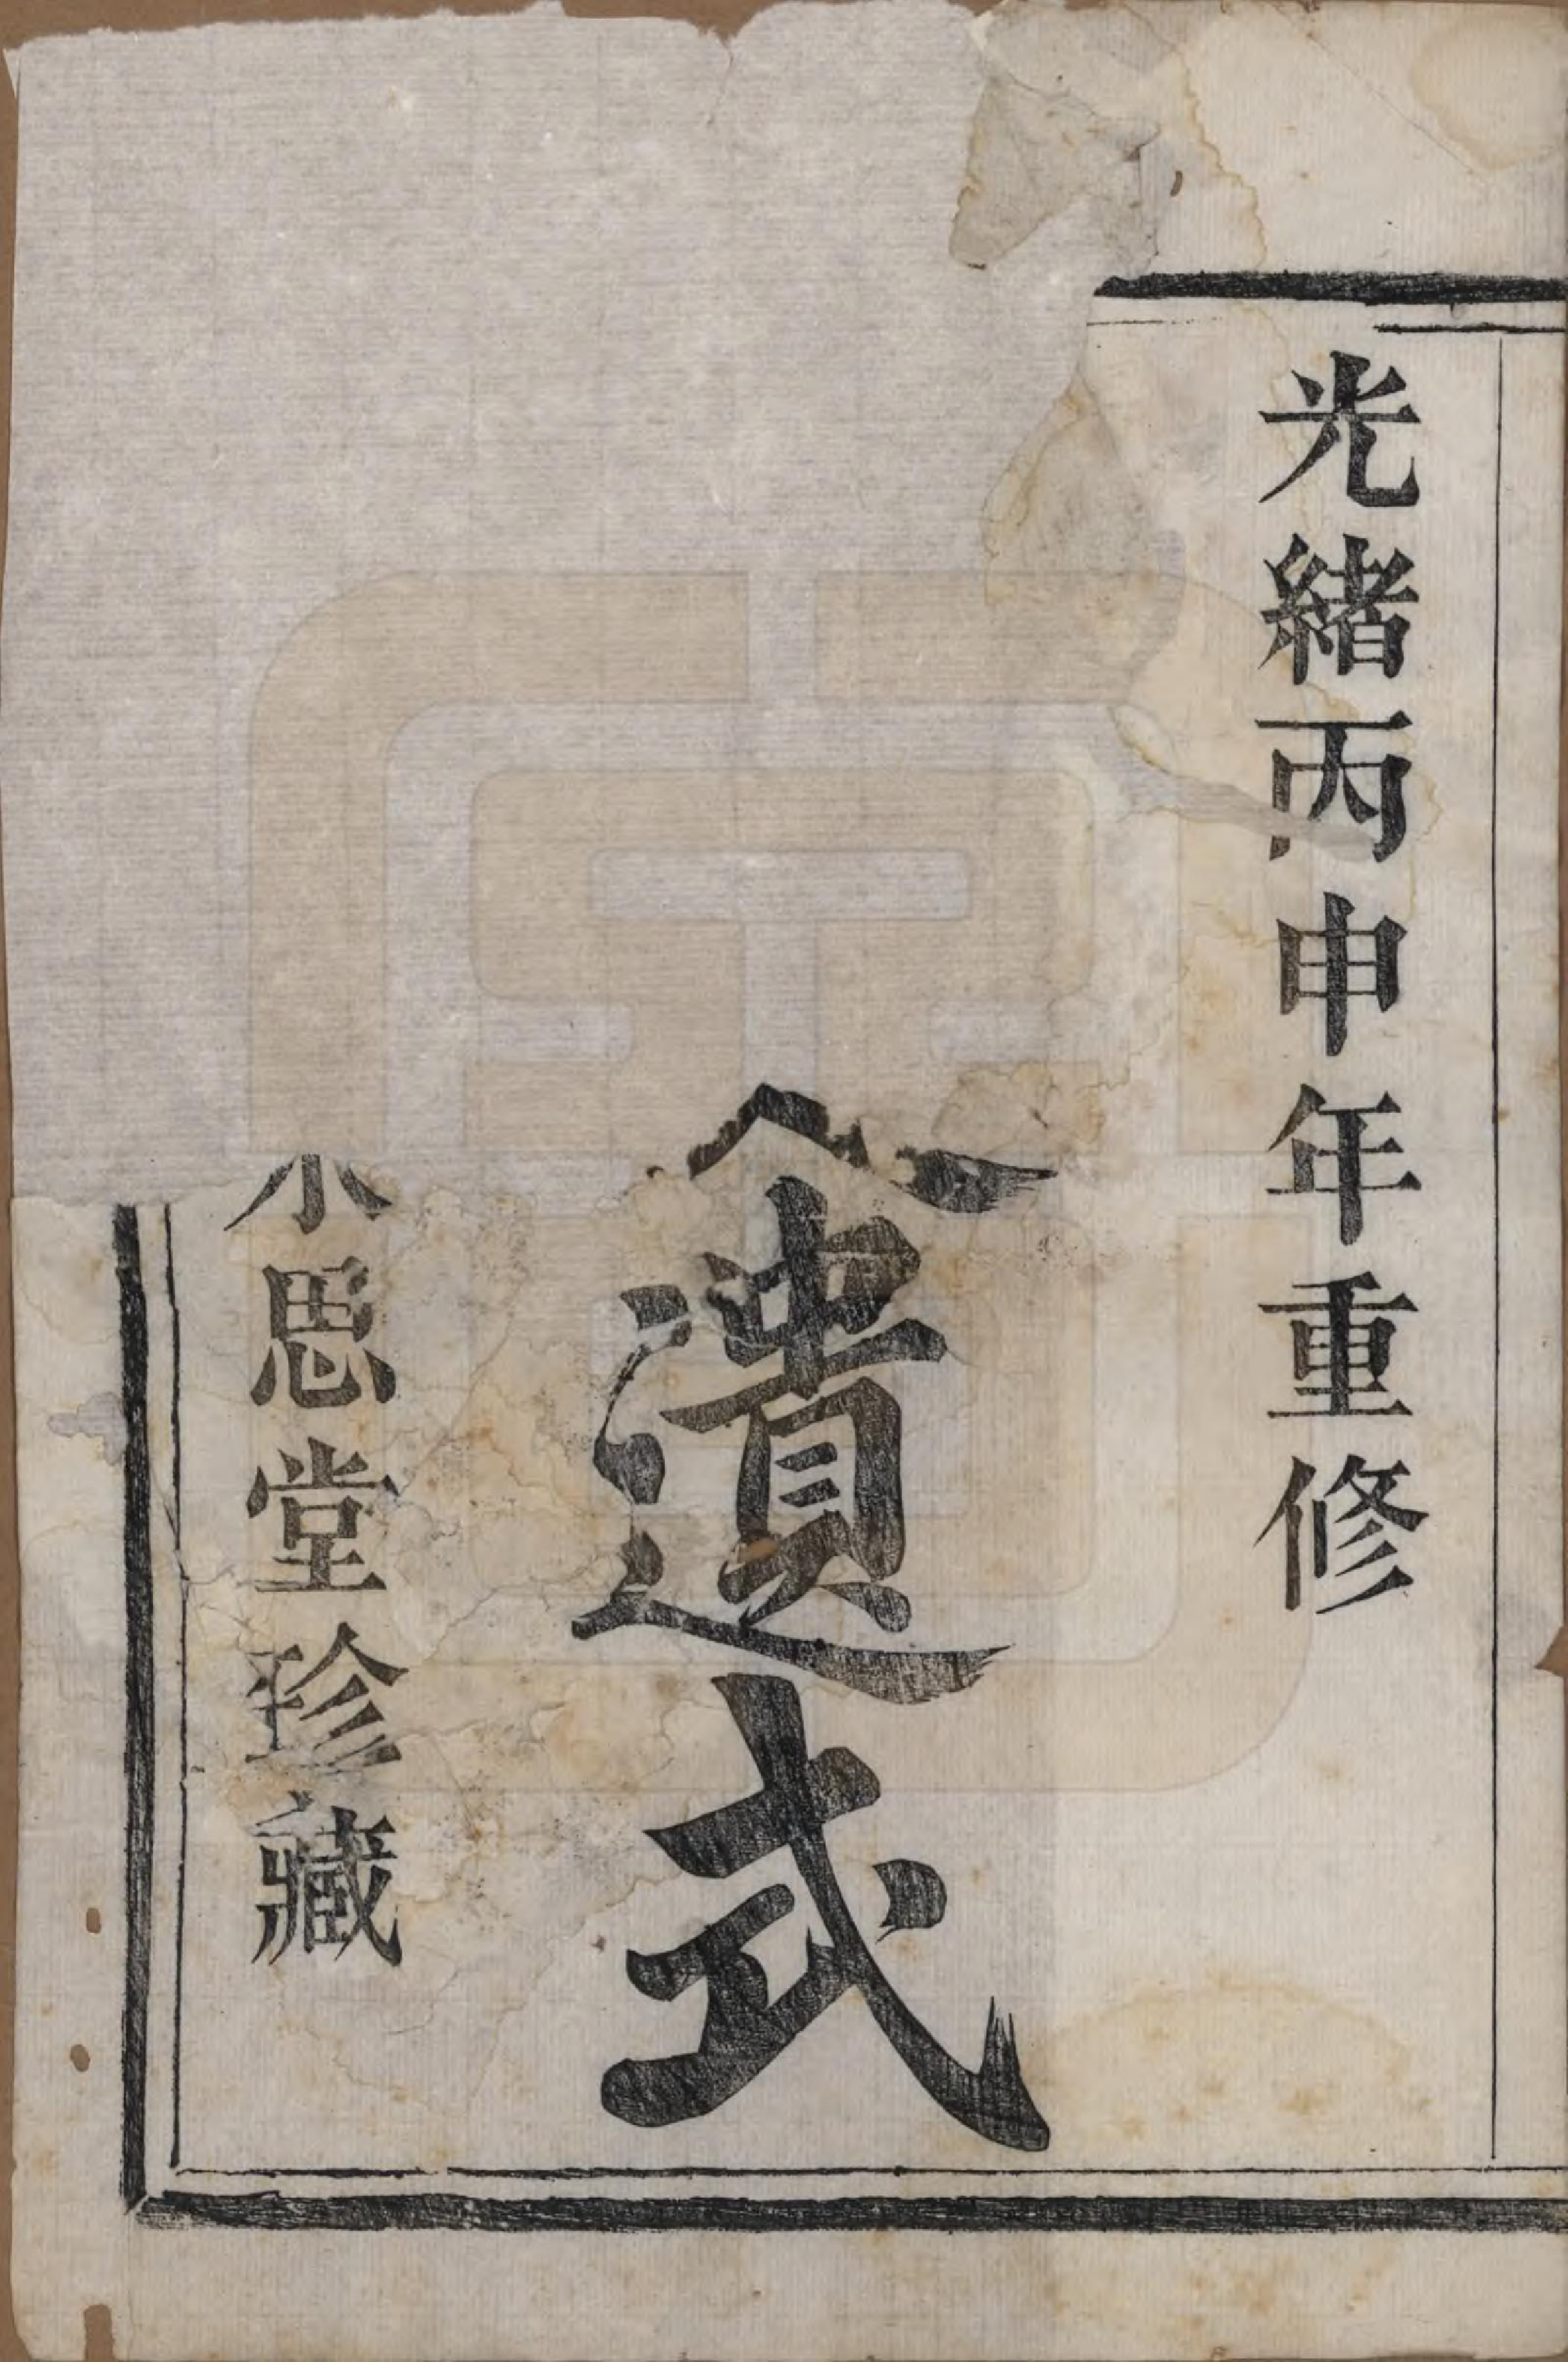 光緒丙申年重修
遺式
思堂珍藏